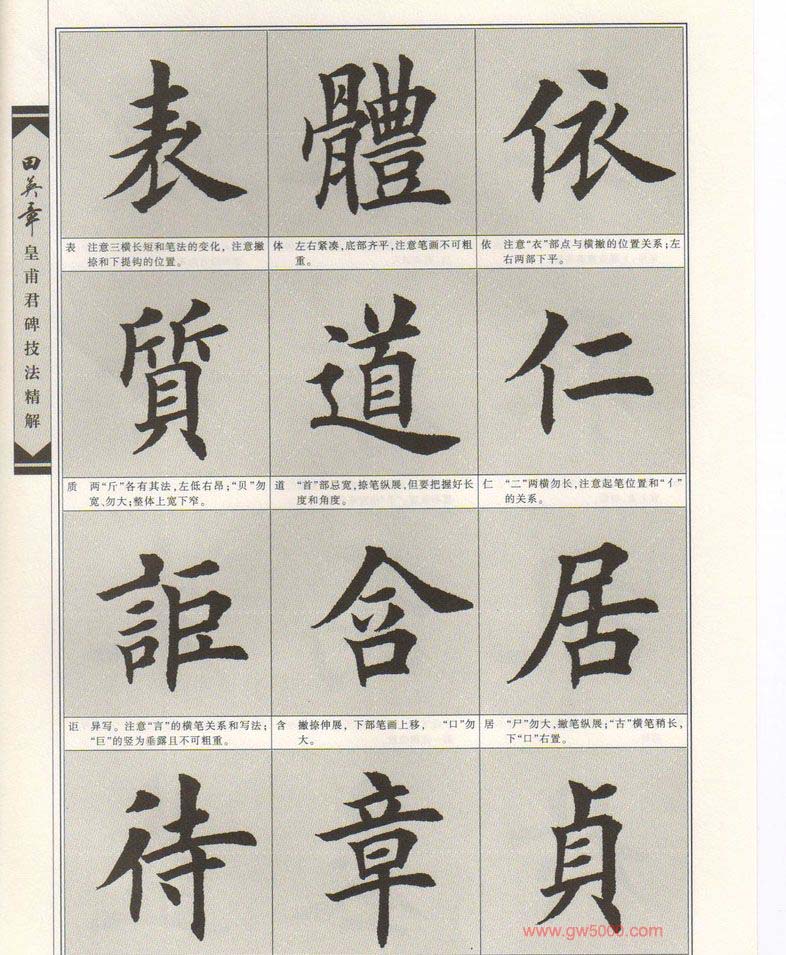 田英章
皇甫君碑技法精解
表 體 依
表 注意三横长短和笔法的变化，注意撇
捺和下提钩的位置。
体 左右紧凑，底部齐平，注意笔画不可粗
重。
依 注意“衣”部点与横撇的位置关系；左
右两部下平。
質 道 仁
质 两“斤”各有其法，左低右昂；“贝”勿
宽、勿大；整体上宽下窄。
道 “首”部忌宽，捺笔纵展，但要把握好长
度和角度。
仁 “二”两横勿长，注意起笔位置和“亻”
的关系。
詎 含 居
讵 异写。注意“言”的横笔关系和写法；
“巨”的竖为垂露且不可粗重。
含 撇捺伸展，下部笔画上移，“口”勿
大。
居 “尸”勿大，撇笔纵展；“古”横笔稍长，
下“口”右置。
待 章 貞
www.gw5000.com